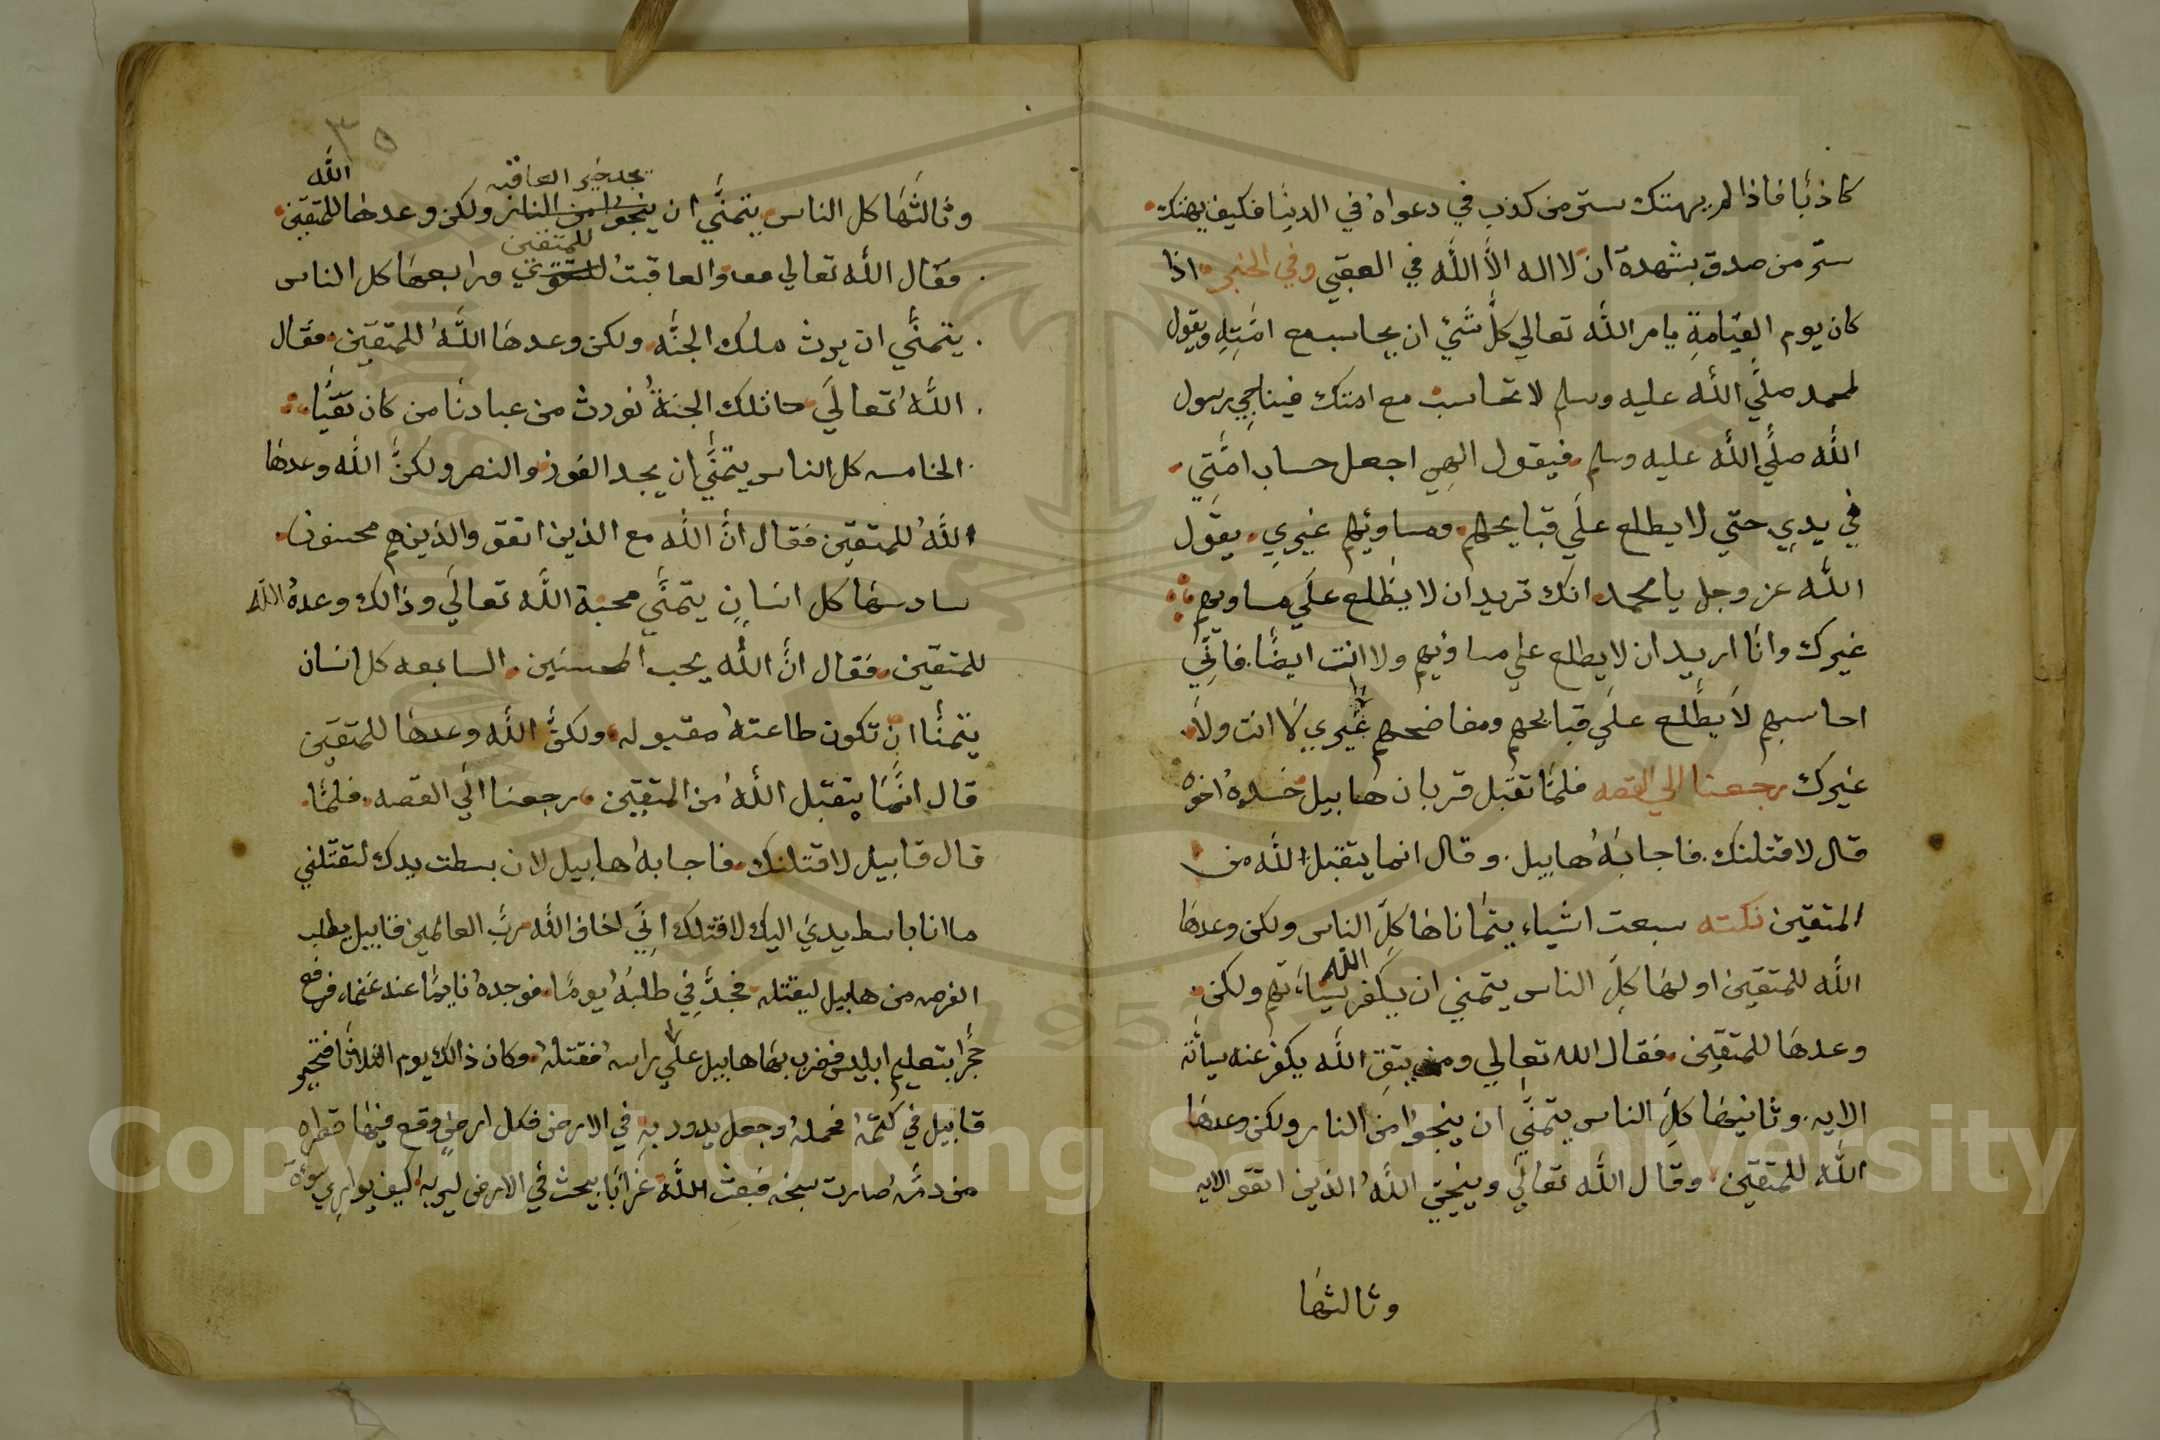 كاذبًا فاذا لم يهتك ستر من كذب في دعواه في الدنيا فكيف يهتك
ستر من صدق بشهدة ان لا اله الا الله في العقبي وفي الخبر اذا
كان يوم القيامة يامر الله تعالي كل شئ ان يحاسب مع امته ويقول
لمحمد صلي الله عليه وسلم لا تحاسب مع امتك فيناجي رسول
الله صلي الله عليه وسلم فيقول الهي اجعل حساب امتي
في يدي حتي لا يطلع علي قبايحهم ومساويهم غيري يقول
الله عز وجل يا محمد انك تريد ان لا يطلع علي مساويهم
غيرك وانا اريد ان لا يطلع علي مساويهم ولا انت ايضًا فاني
احاسبهم لا يطلع علي قبايحهم ومفاضحهم غيري لا انت ولا
غيرك رجعنا الي القصه فلما تقبل قربان هابيل حسده اخوه
قال لاقتلنك فاجابه هابيل وقال انما يتقبل الله من
المتقين نكته سبعت اشياء يتماناها كل الناس ولكن وعدها
الله للمتقين اولها كل الناس يتمني ان يكفر الله سيئاتهم ولكن
وعدها للمتقين فقال الله تعالي ومن يتق الله يكفر عنه سيأته
الايه وثانيها كل الناس يتمني ان ينجوا من النار ولكن وعدها
الله للمتقين وقال الله تعالي وينجي الله الذين اتقو الايه
وثالثها
٣٥
يجد خير العاقبه الله
وثالثها كل الناس يتمني ان ينجوا من النار ولكن وعدها للمتقين
للمتقين
فقال الله تعالي والعاقبت للتقوي ورابعها كل الناس
يتمني ان يرث ملك الجنه ولكن وعدها الله للمتقين فقال
الله تعالي تلك الجنة نورث من عبادنا من كان تقيًا
الخامسه كل الناس يتمني ان يجد الفوز والنصر ولكن الله وعدها
الله للمتقين فقال ان الله مع الذين اتقو والذين هم محسنون
سادسها كل انسان يتمني محبة الله تعالي وذالك وعده الله
للمتقين فقال ان الله يحب المحسنين السابعه كل انسان
يتمنا ان تكون طاعته مقبوله ولكن الله وعدها للمتقين
قال انما يتقبل الله من المتقين رجعنا الي القصه فلما
قال قابيل لاقتلنك فاجابه هابيل لان بسطت يدك لتقتلني
ما انا باسط يدي اليك لاقتلك اني اخاف الله رب العالمين فقابيل يطلب
الفرصه من هابيل ليقتله فجد في طلبه يومًا فوجده نايمًا عند غنمه فرفع
حجرًا بتعليم ابليس فضرب بها هابيل علي راسه فقتله وكان ذالك يوم الثلاثا فتحير
قابيل في كتمه فحمله وجعل يدور به في الارض فكل ارض وقع فيها قطره
من دمه صارت سبخه فبعث الله غرابًا يبحث في الارض ليريه كيف يواري سوأة
Copyright © King Saud University
1957